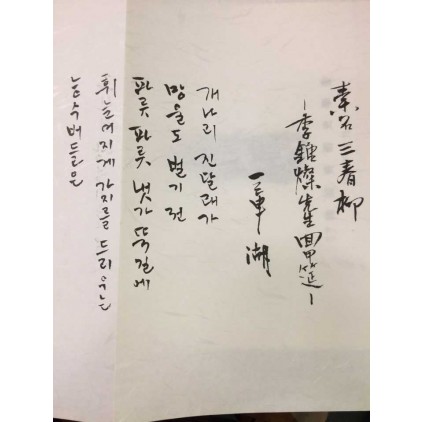 三春柳
燦先生回甲筵
湖
개나리 진달래가
망울도 벌기 전
파릇 파릇 냇가 뚝길에
휘늘어지게 가지를 드리우는
능수버들은